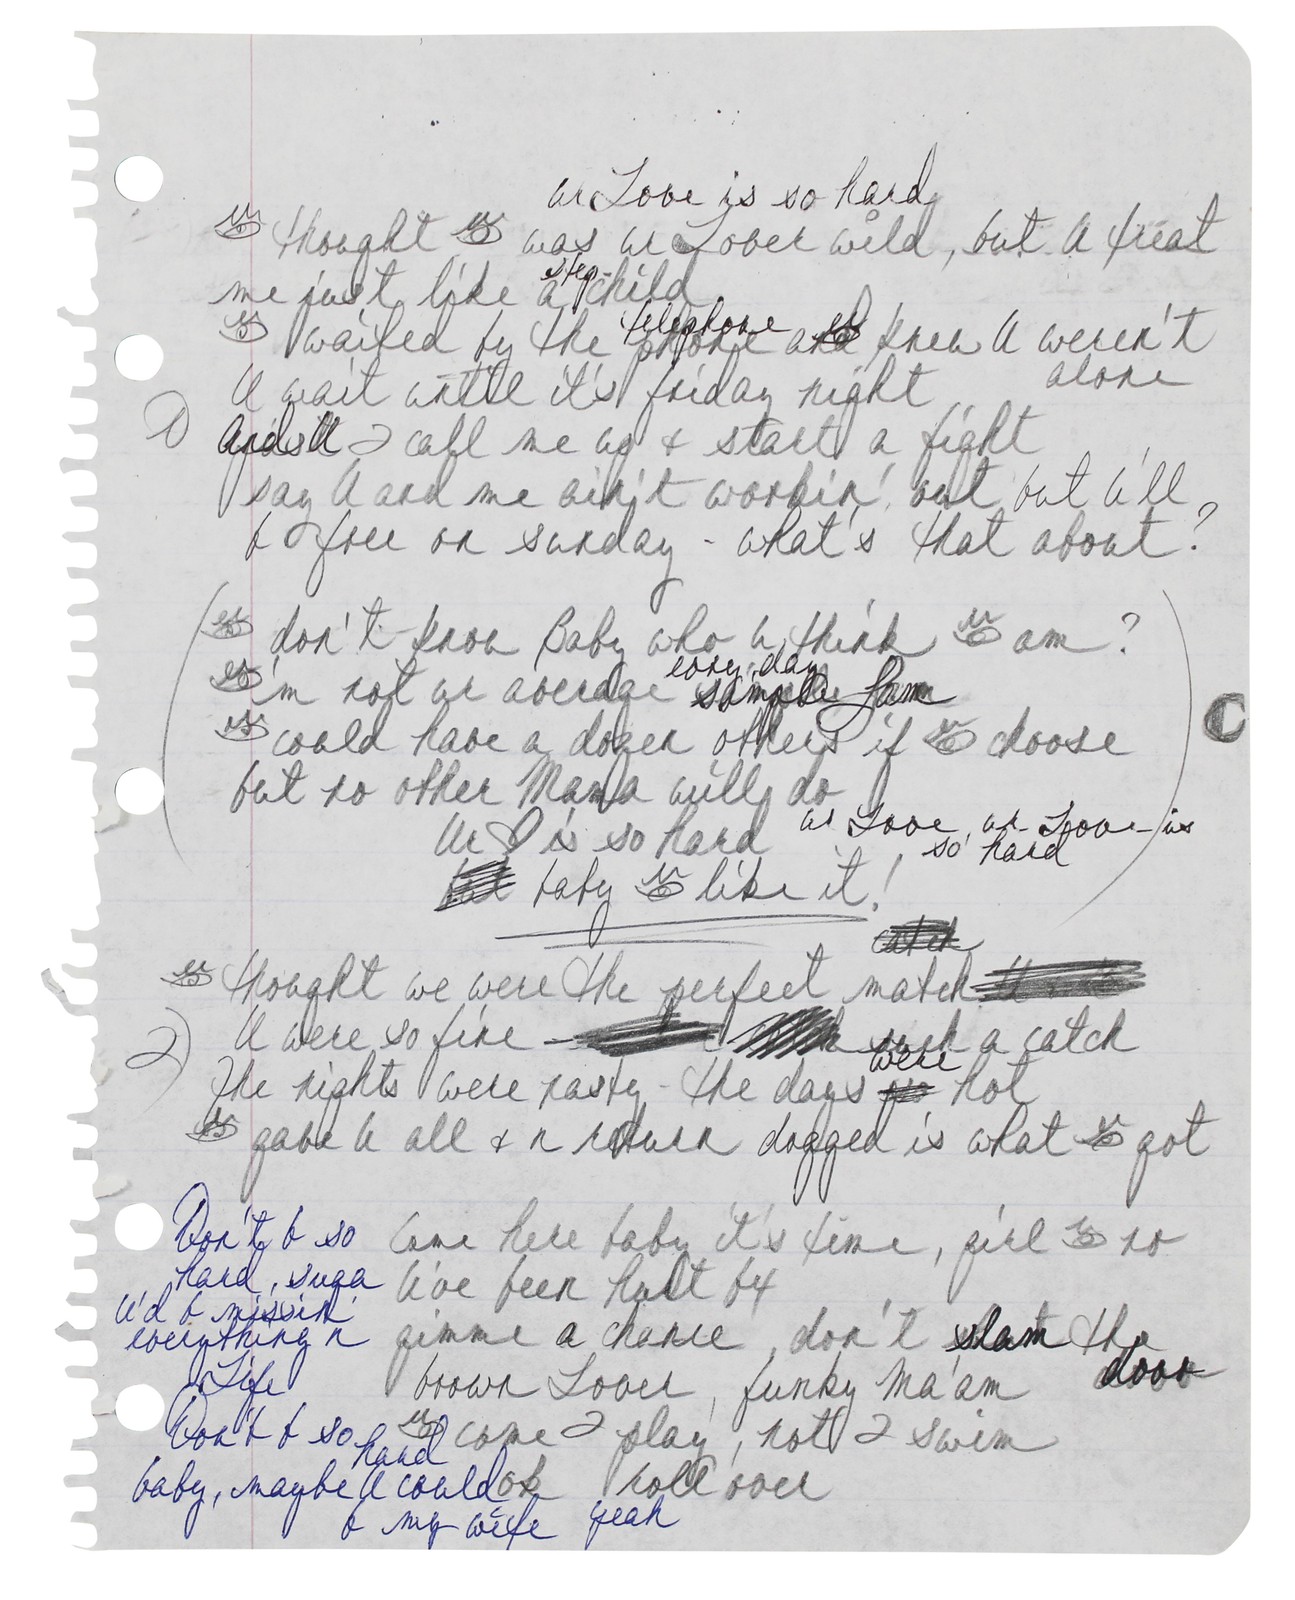 ur Love is so hard
👁 thought 👁 was ur Lover wild, but U treat
me just like a step-child
👁 waited by the telephone phone and 👁 knew U weren't
alone
U wait until it's friday night
1) And U 2 call me up & start a fight
say U and me ain't workin' out but U'll
b free on sunday - what's that about?
👁 don't know Baby who u think 👁 am?
👁'm not ur average every day sample Sam
C
👁 could have a dozen others if 👁 choose
but no other Mama will do
Ur ♡ is so hard ur Love, ur Love is
so hard
baby 👁 like it!
catch
👁 thought we were the perfect match
2) U were so fine - such a catch
The nights were nasty - the days were hot
👁 gave U all & n return dogged is what 👁 got
Don't b so
hard, suga
U'd b missin'
everything n
Life
Don't b so hard
baby, maybe U could
b my wife
Come here baby it's time, girl 👁 no
U've been hurt b4
gimme a chance, don't slam the
door
brown Lover, funky Ma'am
👁 come 2 play, not 2 swim
ok roll over
yeah